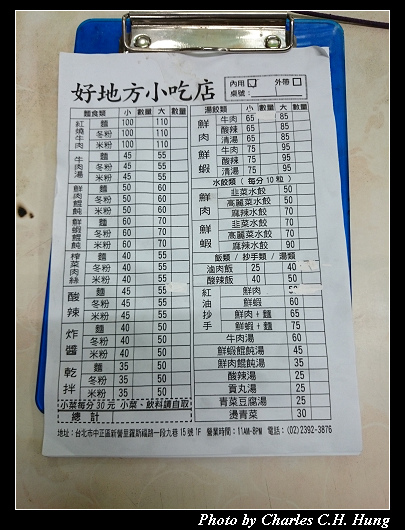 好地方小吃店
內用 ☑ 外帶 □
桌號:
麵食類 小 數量 大 數量
紅燒牛肉 麵 100 110
冬粉 100 110
米粉 100 110
牛肉湯 麵 45 55
冬粉 45 55
米粉 45 55
鮮肉餛飩 麵 50 60
冬粉 50 60
米粉 50 60
鮮蝦餛飩 麵 60 70
冬粉 60 70
米粉 60 70
榨菜肉絲 麵 45 55
冬粉 45 55
米粉 45 55
酸辣 麵 45 55
冬粉 45 55
米粉 45 55
炸醬 麵 40 50
冬粉 40 50
米粉 40 50
乾拌 麵 35 50
冬粉 35 50
米粉 35 50
小菜每分30元 小菜、飲料請自取
總計
湯餃類 小 數量 大 數量
鮮肉 牛肉 65 85
酸辣 65 85
清湯 65 85
鮮蝦 牛肉 75 95
酸辣 75 95
清湯 75 95
水餃類 (每分10粒)
鮮肉 韭菜水餃 50
高麗菜水餃 50
麻辣水餃 70
鮮蝦 韭菜水餃 70
高麗菜水餃 70
麻辣水餃 90
飯類/抄手類/湯類
滷肉飯 25 40
酸辣飯 40 50
紅油抄手 鮮肉
鮮蝦 60
鮮肉+麵 65
鮮蝦+麵 75
牛肉湯 60
鮮蝦餛飩湯 45
鮮肉餛飩湯 35
酸辣湯 25
貢丸湯 25
青菜豆腐湯 25
燙青菜 30
地址:台北市中正區新營里羅斯福路一段九巷15號1F 營業時間:11AM-8PM 電話:(02)2392-3876
Photo by Charles C.H. Hung